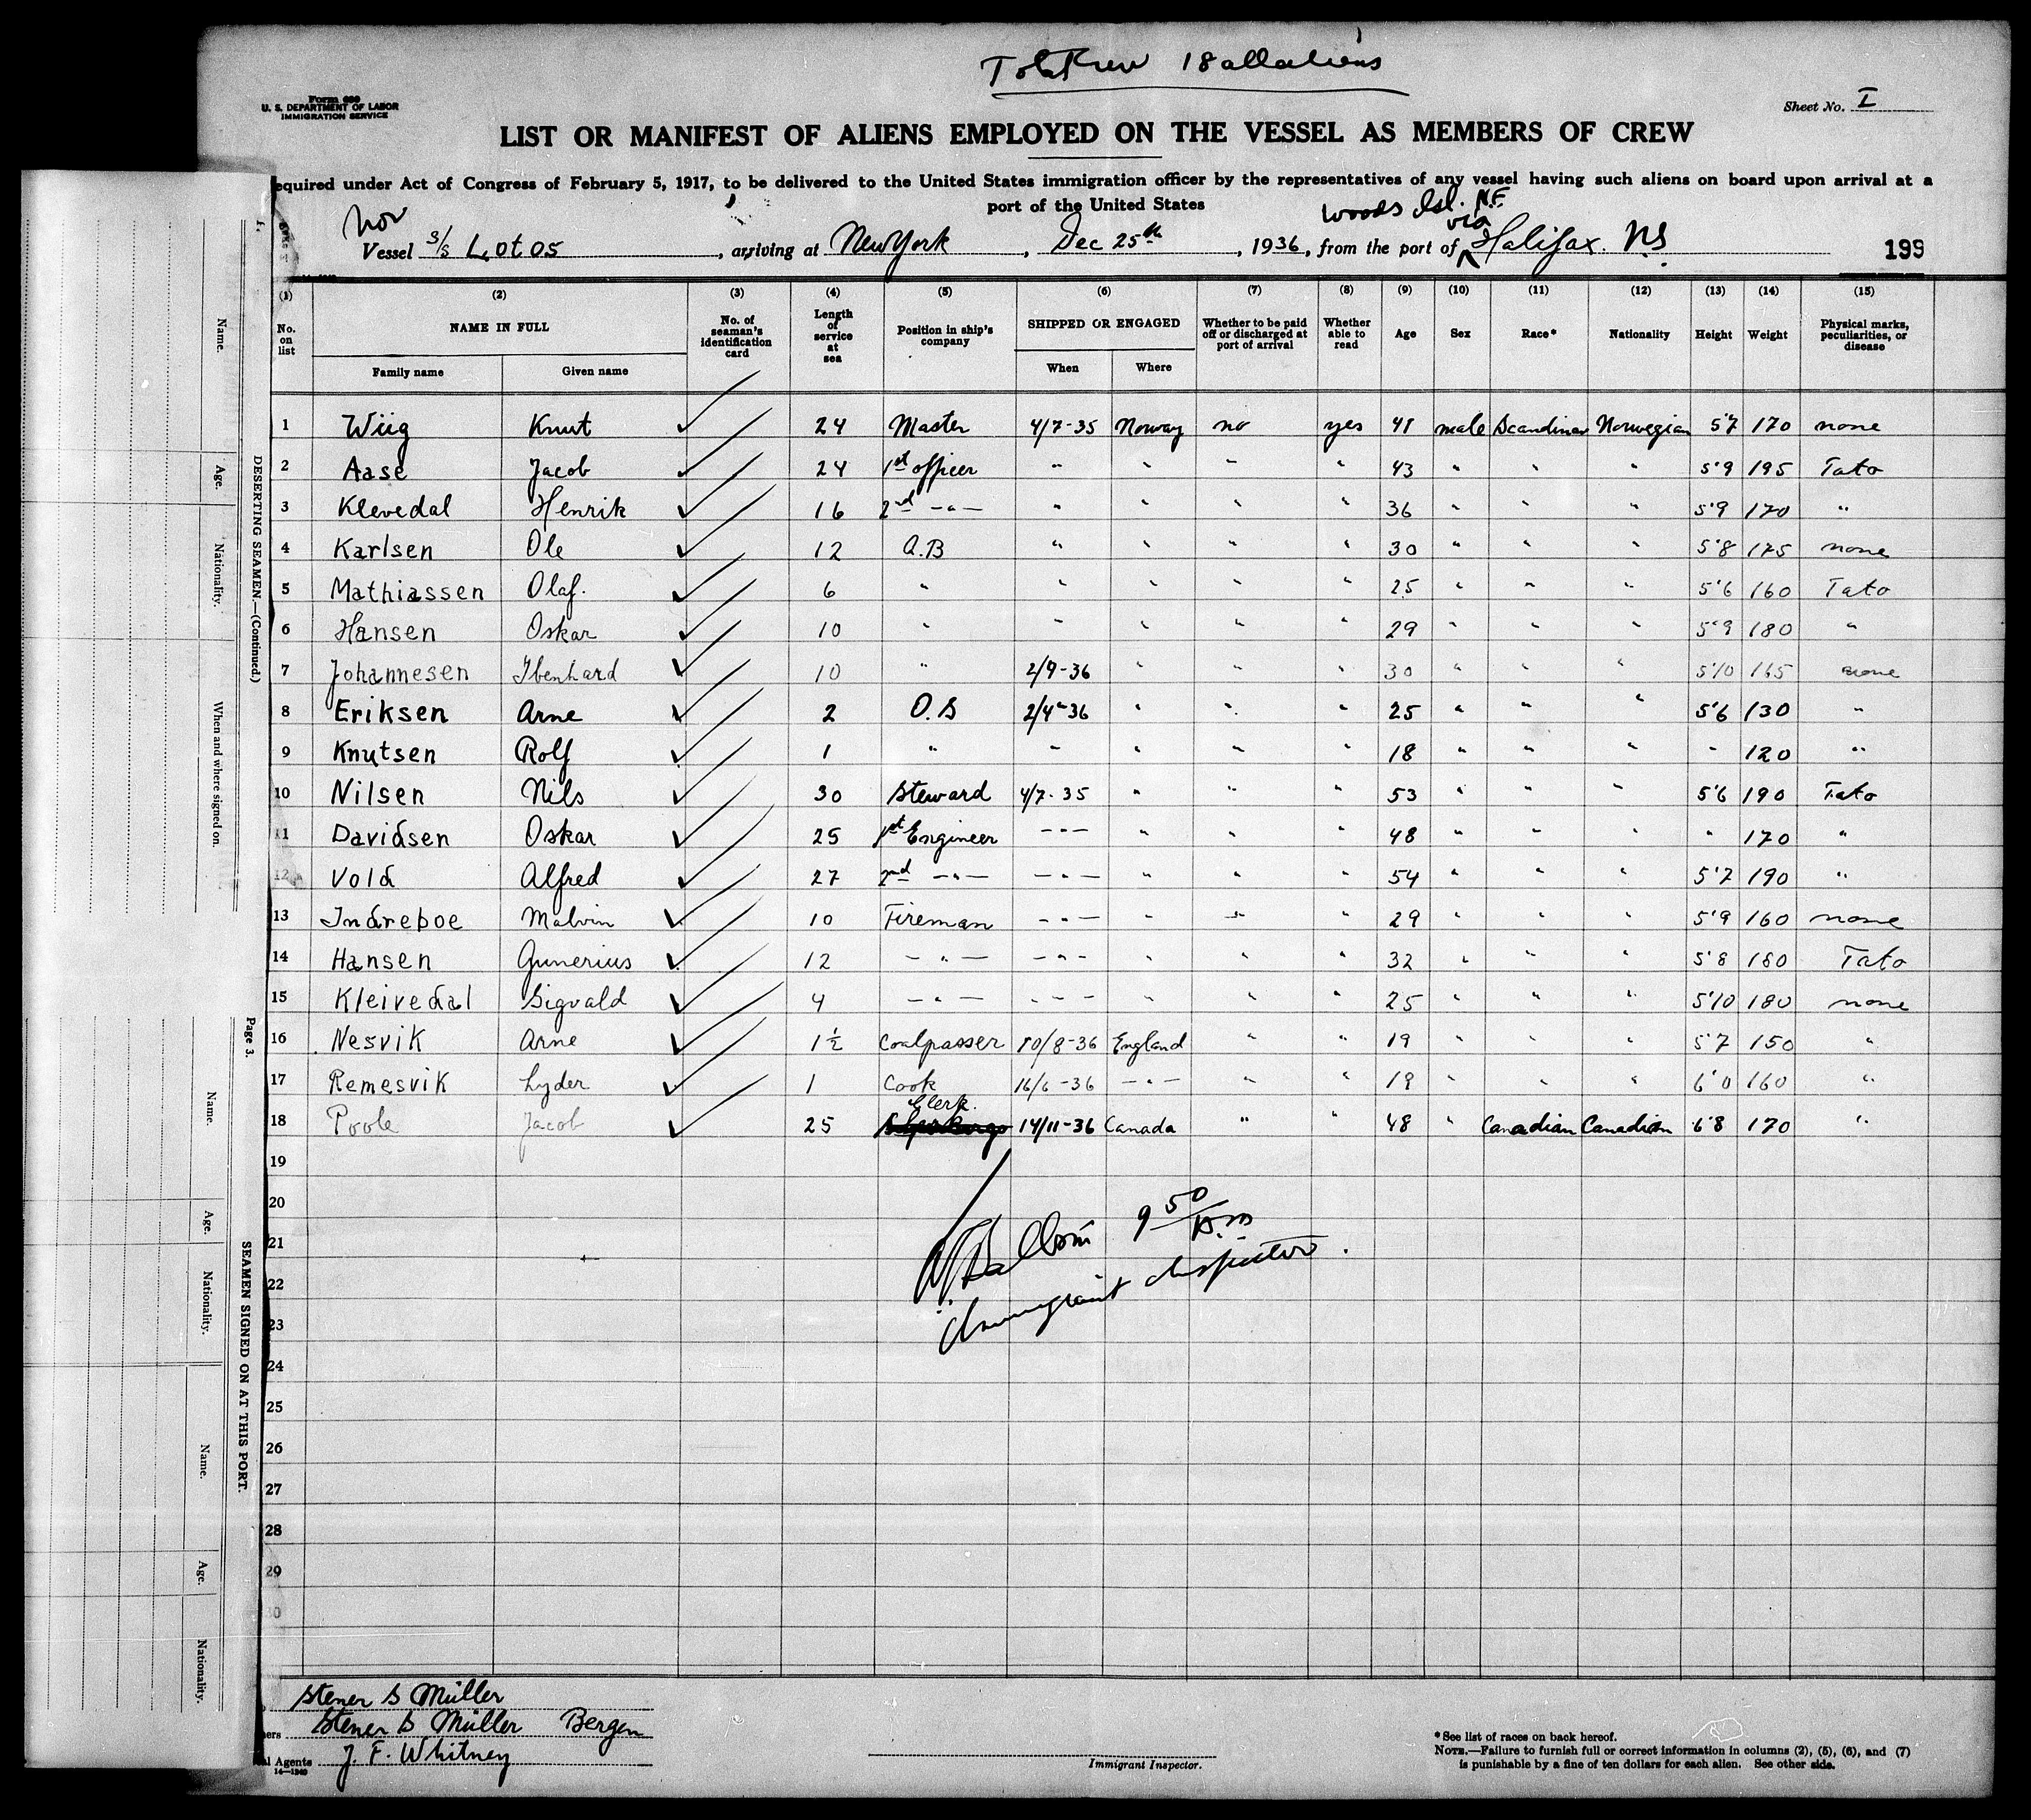 Total Crew 18 all aliens
Form 689
U. S. DEPARTMENT OF LABOR
IMMIGRATION SERVICE
Sheet No. I
LIST OR MANIFEST OF ALIENS EMPLOYED ON THE VESSEL AS MEMBERS OF CREW
equired under Act of Congress of February 5, 1917, to be delivered to the United States immigration officer by the representatives of any vessel having such aliens on board upon arrival at a
port of the United States
Nor Woods Isl. N.F. via
Vessel S/S Lotos, arriving at New York, Dec 25th, 1936, from the port of Halifax. N.S. 199
(1) (2) (3) (4) (5) (6) (7) (8) (9) (10) (11) (12) (13) (14) (15)
No. on list NAME IN FULL No. of seaman's identification card Length of service at sea Position in ship's company SHIPPED OR ENGAGED Whether to be paid off or discharged at port of arrival Whether able to read Age Sex Race* Nationality Height Weight Physical marks, peculiarities, or disease
Family name Given name When Where
1 Wiig Knut 24 Master 4/7-35 Norway no yes 41 male Scandinav Norwegian 5'7 170 none
2 Aase Jacob 24 1st officer " " " " 43 " " " 5'9 195 Tato
3 Klevedal Henrik 16 2nd -"- " " " " 36 " " " 5'9 170 "
4 Karlsen Ole 12 A.B " " " " 30 " " " 5'8 175 none
5 Mathiassen Olaf. 6 " " " " " 25 " " " 5'6 160 Tato
6 Hansen Oskar 10 " " " " " 29 " " " 5'9 180 "
7 Johannesen Ibenhard 10 " 2/9-36 " " " 30 " " " 5'10 165 none
8 Eriksen Arne 2 O.S 2/4-36 " " " 25 " " " 5'6 130 "
9 Knutsen Rolf 1 " " " " " 18 " " " " 120 "
10 Nilsen Nils 30 Steward 4/7-35 " " " 53 " " " 5'6 190 Tato
11 Davidsen Oskar 25 1st Engineer -"- " " " 48 " " " " 170 "
12 Vold Alfred 27 2nd -"- -"- " " " 54 " " " 5'7 190 "
13 Indreboe Malvin 10 Fireman -"- " " " 29 " " " 5'9 160 none
14 Hansen Gunerius 12 -"- -"- " " " 32 " " " 5'8 180 Tato
15 Kleivedal Sigvald 4 -"- -"- " " " 25 " " " 5'10 180 none
16 Nesvik Arne 1½ Coalpasser 10/8-36 England " " 19 " " " 5'7 150 "
17 Remesvik Lyder 1 Cook 16/6-36 -"- " " 19 " " " 6'0 160 "
18 Poole Jacob 25 Clerk. 14/11-36 Canada " " 48 " Canadian Canadian 6'8 170 "
19
20
21
22
23
24
25
26
27
28
29
30
9 50/A.m
Immigrant Inspector.
Stener S Müller
ners Stener S Müller Bergen
al Agents J. F. Whitney
14—1240
Immigrant Inspector.
* See list of races on back hereof.
NOTE.—Failure to furnish full or correct information in columns (2), (5), (6), and (7)
is punishable by a fine of ten dollars for each alien. See other side.
DESERTING SEAMEN.—(Continued.)
Name.
Age.
Nationality.
When and where signed on.
Page 3.
SEAMEN SIGNED ON AT THIS PORT.
Name.
Age.
Nationality.
Name.
Age.
Nationality.